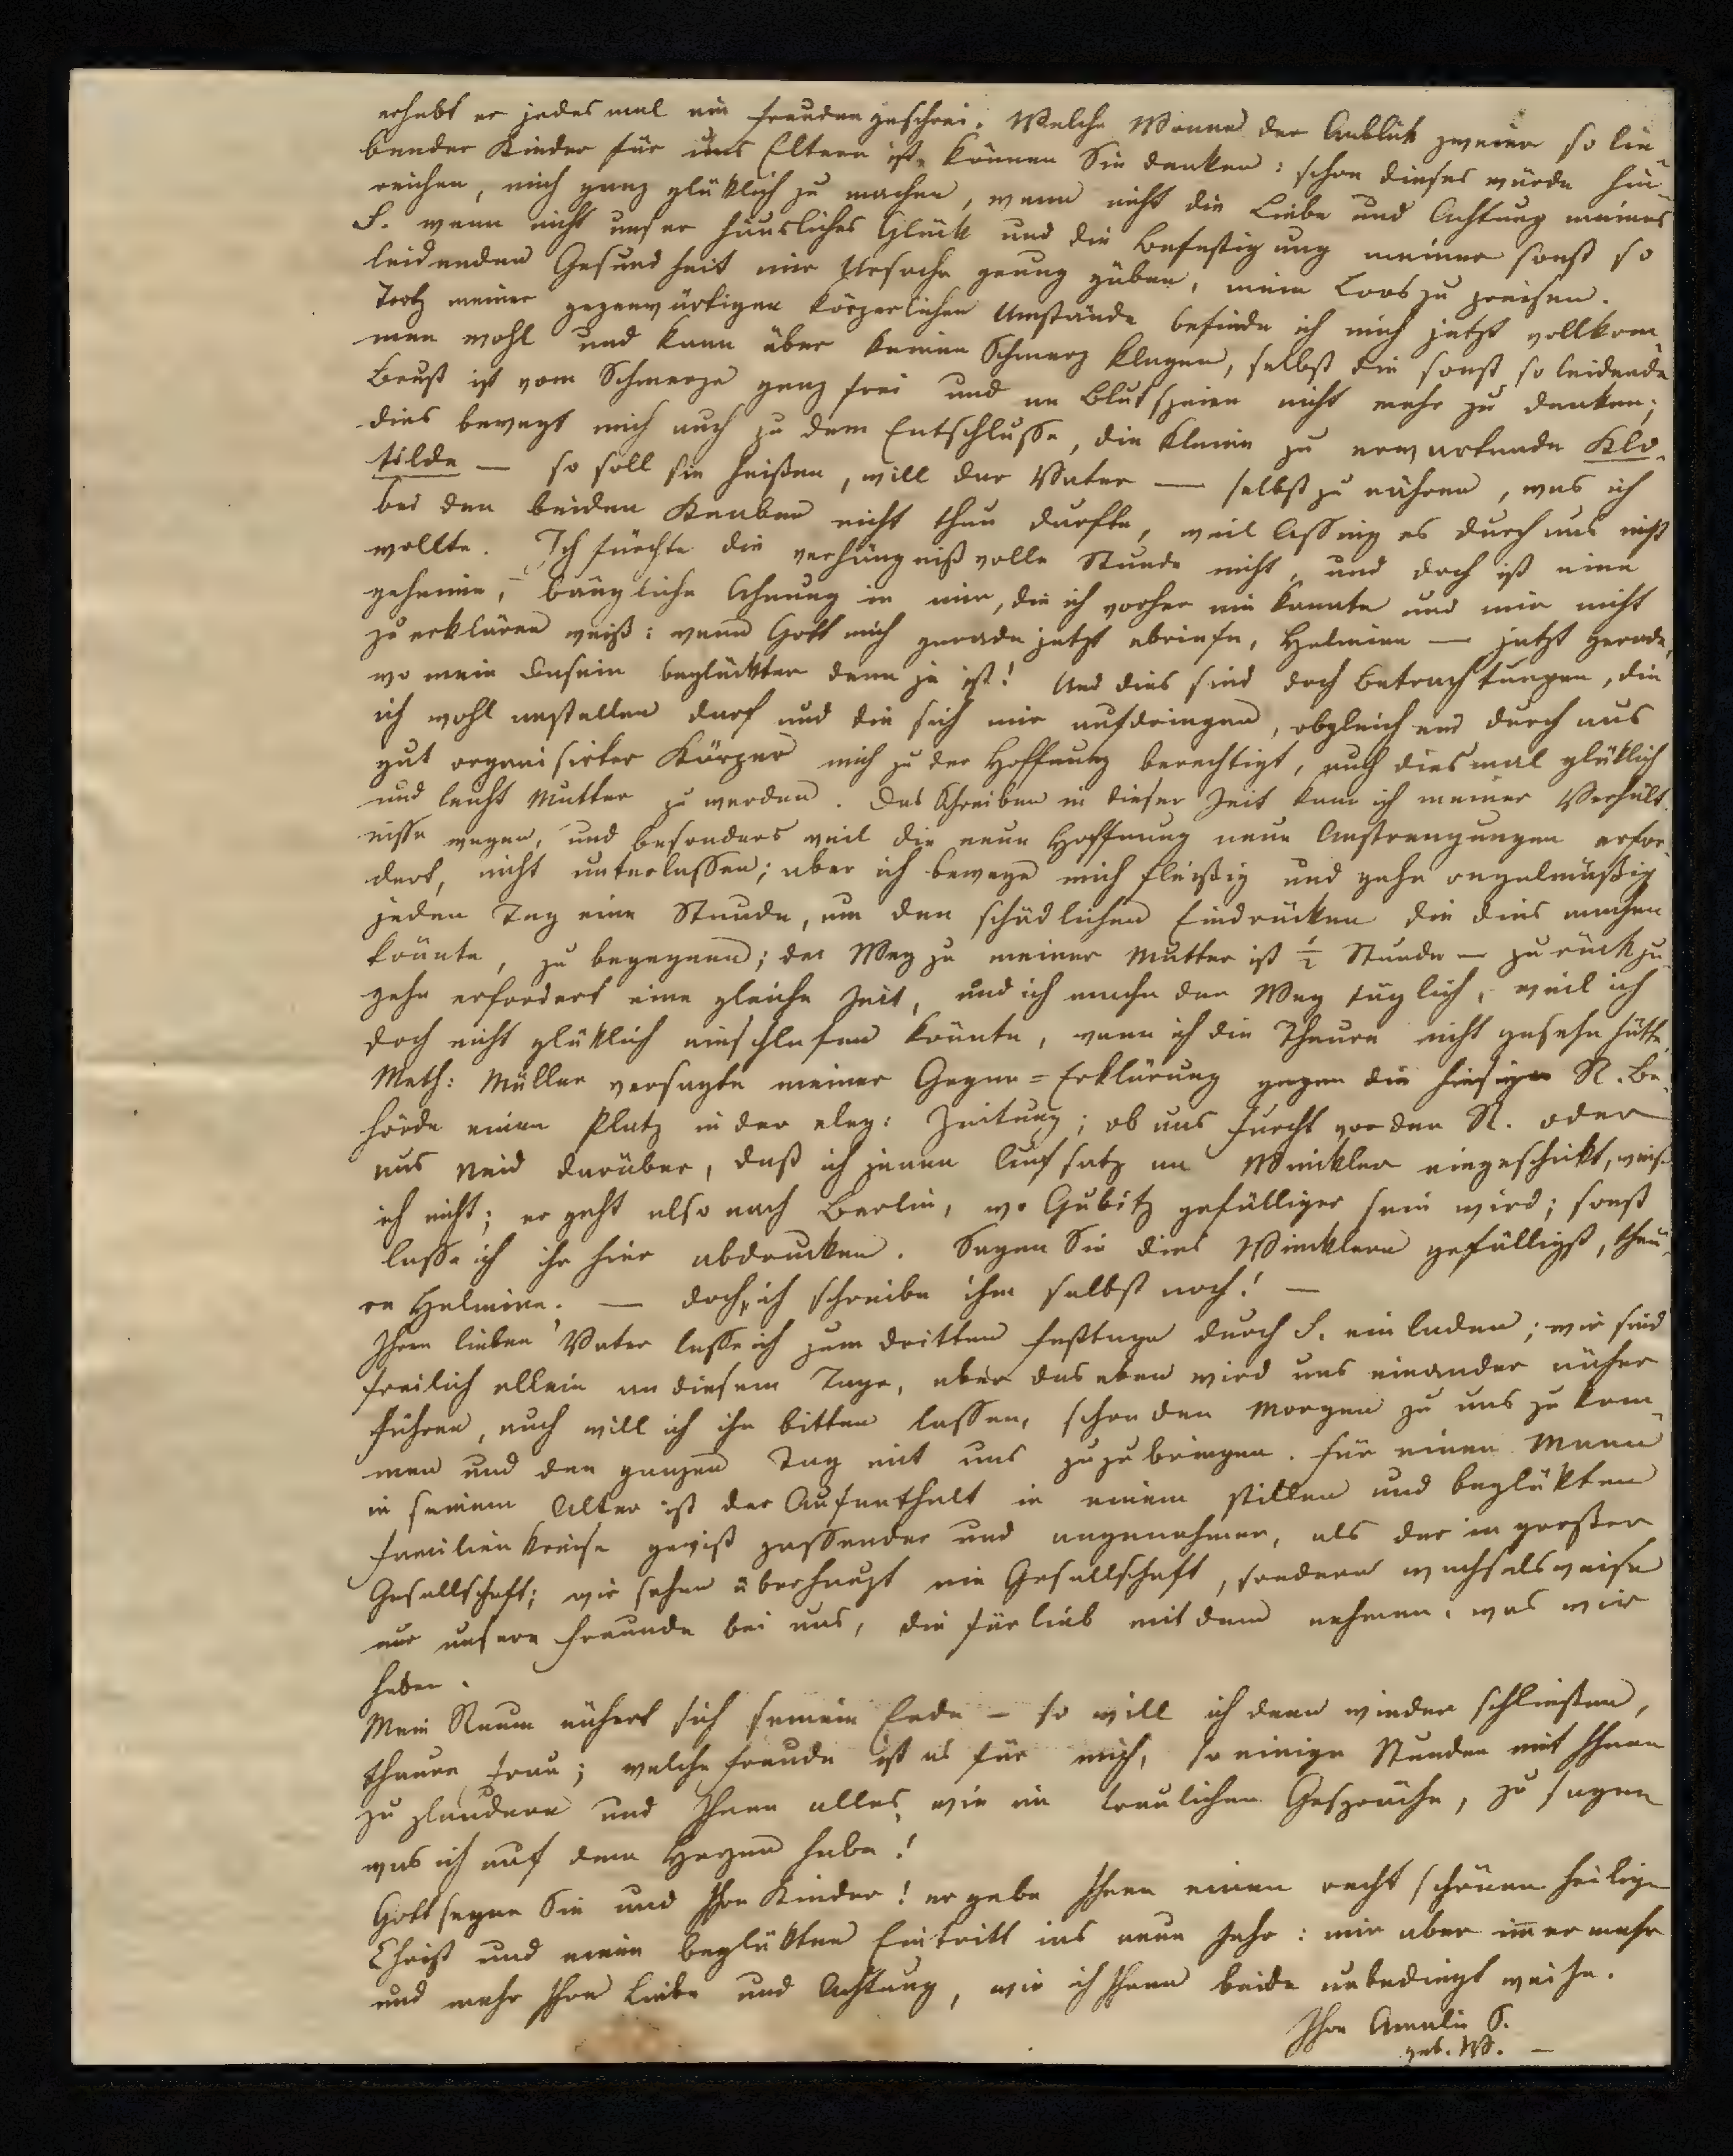 erhebt er jedes mal ein Freudengeschrei. Welche Wonne der Anblick zweier so lie-
bender Kinder für uns Eltern ist, können Sie denken: schon dieses würde hin-
reichen, mich ganz glüklich zu machen, wenn nicht die Liebe und Achtung meines
S. wenn nicht unser häusliches Glück und die Befestigung meiner sonst so
leidenden Gesundheit mir Ursache genug gäben, mein Loos zu preisen.
Trotz meiner gegenwärtigen körperlichen Umstände befinde ich mich jetzt vollkom-
men wohl und kann über keinen Schmerz klagen, selbst die sonst so leidende
Brust ist vom Schmerze ganz frei und an Blutspeien nicht mehr zu denken;
dies bewegt mich auch zu dem Entschlusse, die kleine zu erwartende Klo-
tilde — so soll sie heißen, will der Vater — selbst zu nähren, was ich
bei den beiden Knaben nicht thun durfte, weil Lessing es durchaus nicht
wollte. Ich fürchte die verhängnißvolle Stunde nicht, und doch ist eine
geheime, bängliche Ahnung in mir, die ich vorher nie kannte und mir nicht
zu erklären weiß: wenn Gott mich gerade jetzt abriefe, Helmine — jetzt gerade,
wo mein Dasein beglückter denn je ist! Und dies sind doch Betrachtungen, die
ich wohl anstellen darf und die sich mir aufdringen, obgleich ein durchaus
gut organisirter Körper mich zu der Hoffnung berechtigt, auch diesmal glüklich
und leicht Mutter zu werden. Das Schreiben in dieser Zeit kann ich meiner Verhält-
nisse wegen, und besonders weil die neue Hoffnung neue Anstrengungen erfor-
dert, nicht unterlassen; aber ich bewege mich fleißig und gehe regelmäßig
jeden Tag eine Stunde, um den schädlichen Eindrücken die dies machen
könnte, zu begegnen; der Weg zu meiner Mutter ist ½ Stunde — zurück zu
gehn erfordert eine gleiche Zeit, und ich mache den Weg täglich, weil ich
doch nicht glüklich einschlafen könnte, wenn ich die Theure nicht gesehn hätte.
Meth: Müller versagte meiner Gegen=Erklärung gegen die hiesige R. Be-
hörde einen Platz in der eleg: Zeitung; ob aus Furcht vor den R. oder
aus Neid darüber, daß ich jenen Aufsatz an Winckler eingeschickt, weiß
ich nicht; er geht also nach Berlin, wo Gubitz gefälliger sein wird; sonst
lasse ich ihn hier abdrucken. Sagen Sie dies Wincklern gefälligst, theu-
re Helmine. — doch, ich schreibe ihm selbst noch! —
Ihren lieben Vater lasse ich zum dritten Festtage durch S. einladen; wir sind
freilich allein an diesem Tage, aber das eben wird uns einander näher
führen, auch will ich ihn bitten lassen, schon den Morgen zu uns zu kom-
men und den ganzen Tag mit uns zuzubringen. Für einen Mann
in seinem Alter ist der Aufenthalt in einem stillen und beglükten
Familienkreise gewiß passender und angenehmer, als der in großer
Gesellschaft; wir sehen überhaupt nie Gesellschaft, sondern wechselsweise
nur unsere Freunde bei uns, die fürlieb mit dem nehmen, was wir
haben.
Mein Raum nähert sich seinem Ende — so will ich denn wieder schließen,
theure Frau; welche Freude ist es für mich, so einige Stunden mit Ihnen
zu plaudern und Ihnen alles, wie im traulichen Gespräche, zu sagen
was ich auf dem Herzen habe!
Gott segne Sie und Ihre Kinder! er gebe Ihnen einen recht schönen heiligen
Christ und einen beglükten Eintritt ins neue Jahr: mir aber immer mehr
und mehr Ihre Liebe und Achtung, wie ich Ihnen beide unbedingt weihe.
Ihre Amalie S.
geb. W. —